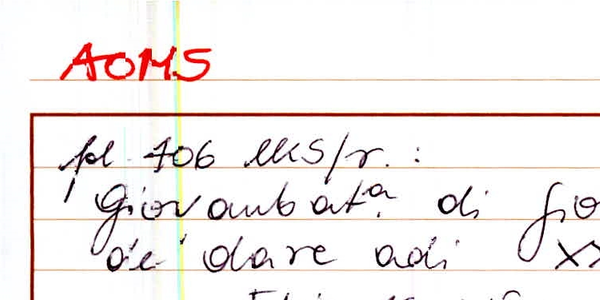 AOMS
fol. 406 MKS/r. :
Giovanbat.ª di Gio
de' dare adi XX